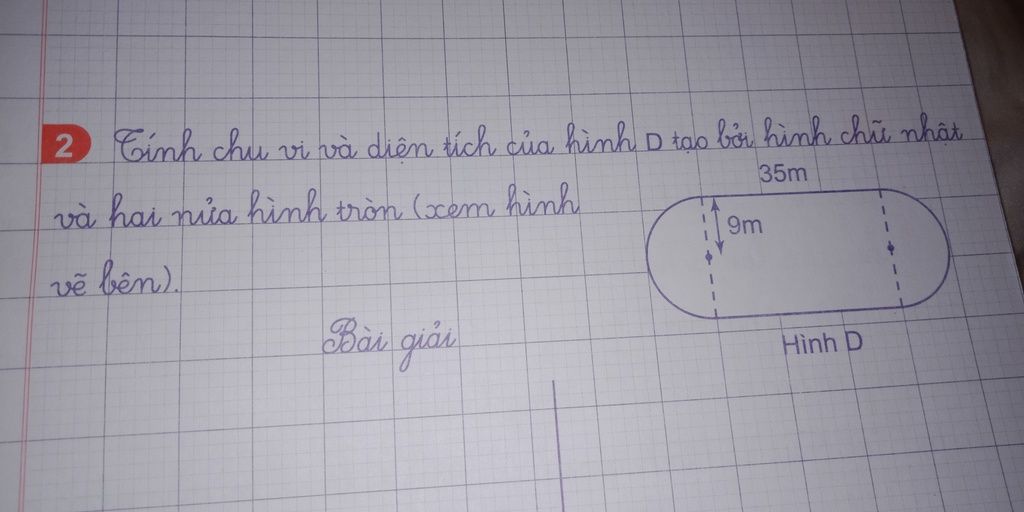 2 Tính chu vi và diện tích của hình D tạo bởi hình chữ nhật
35m
và hai nửa hình tròn (xem hình
9m
vẽ bên).
Bài giải
Hình D